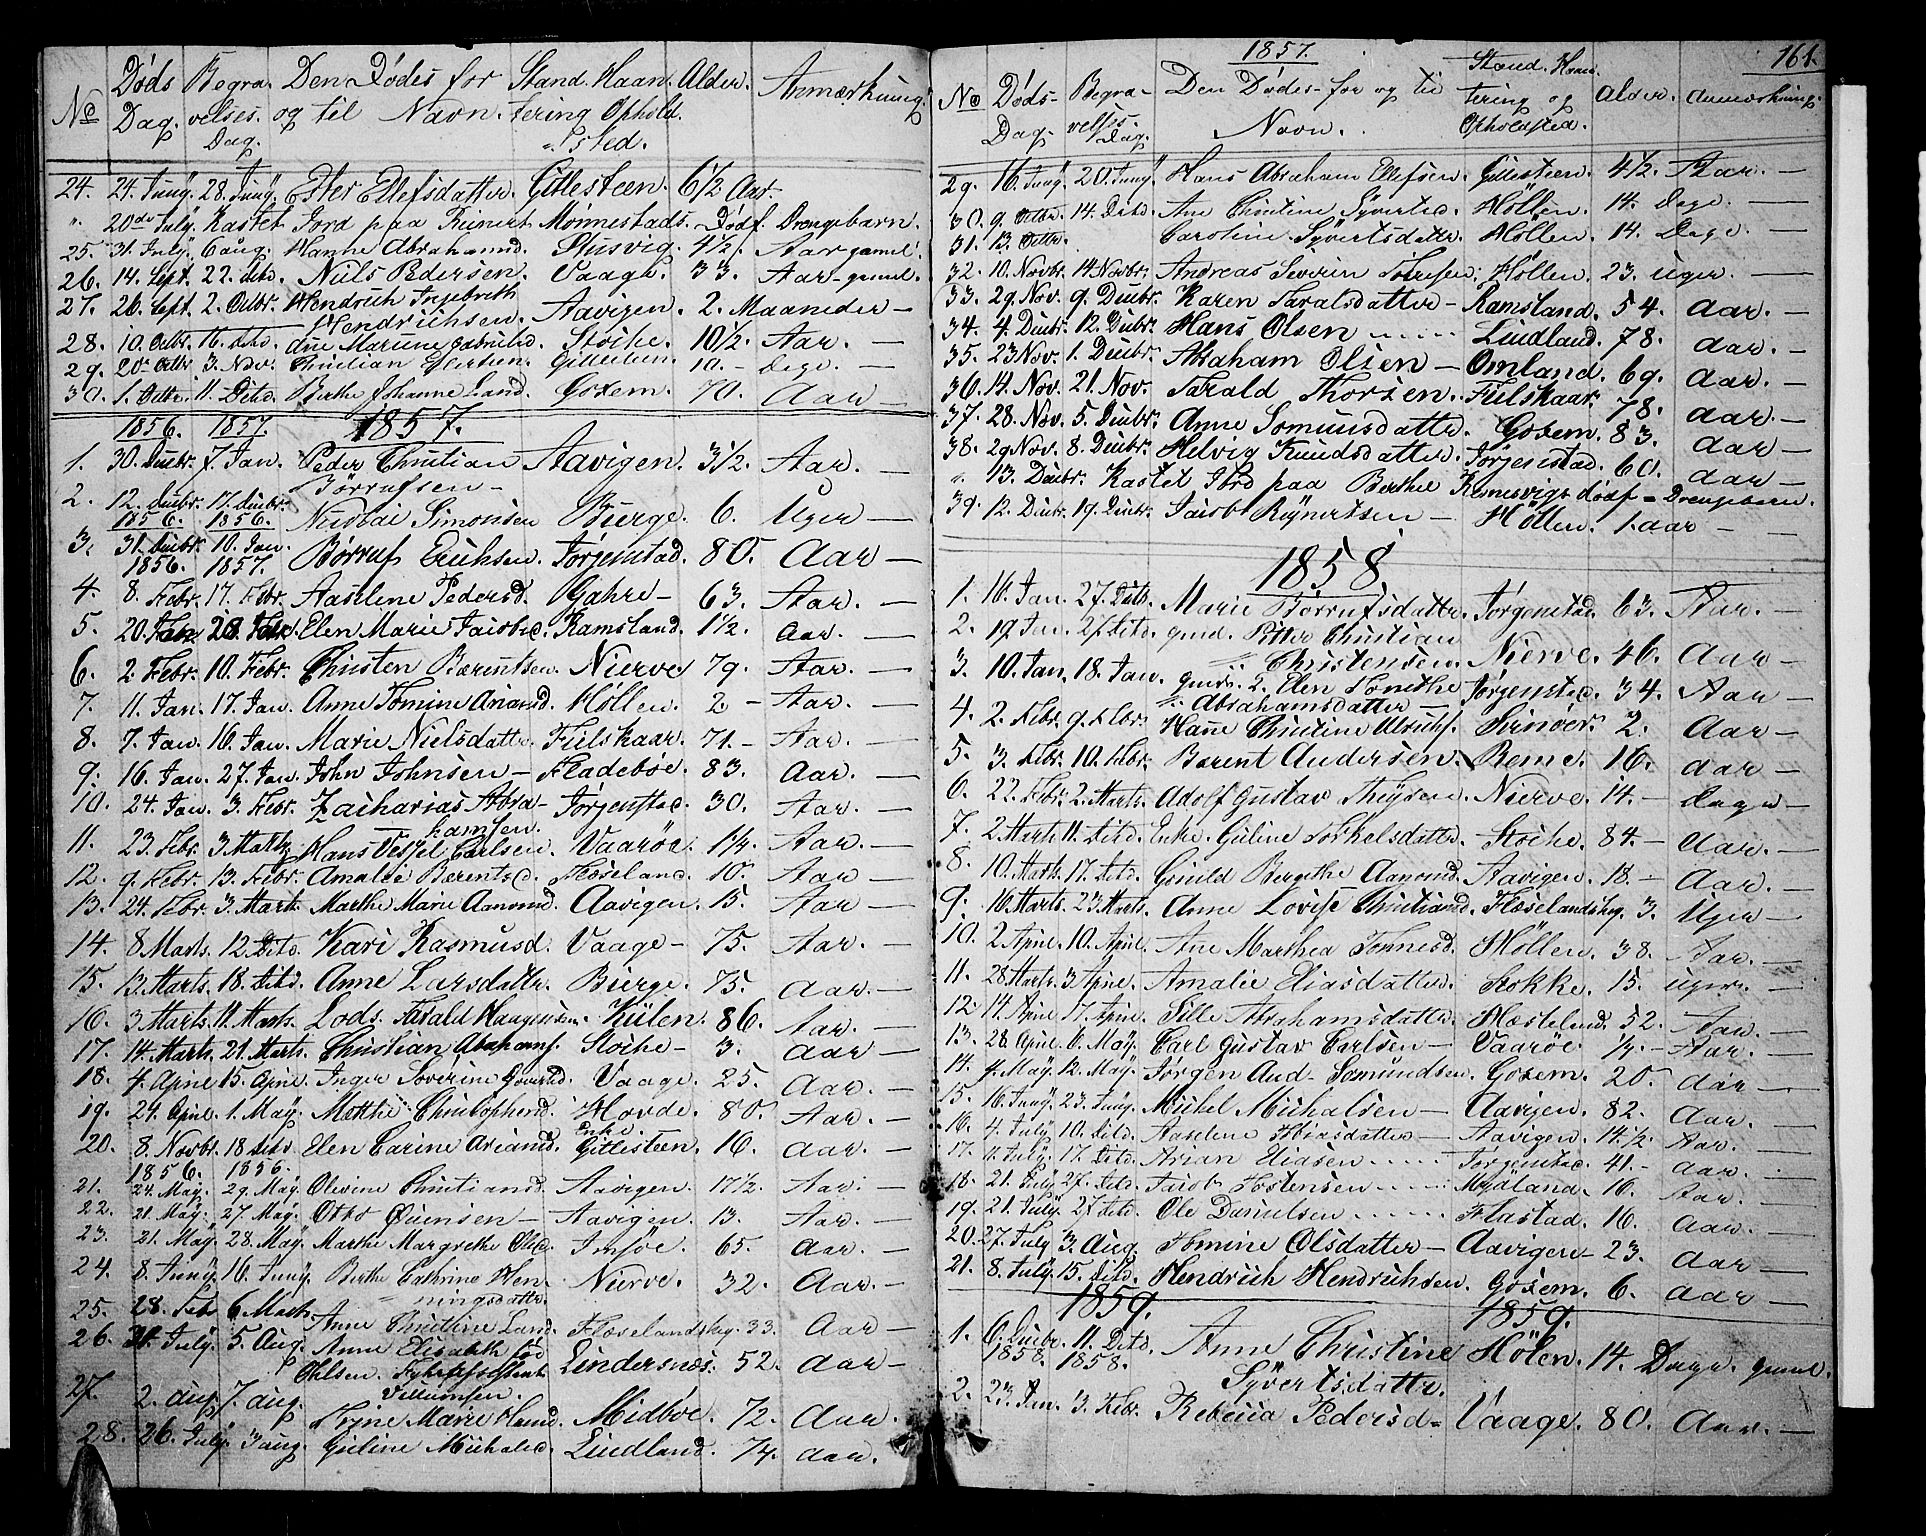 No Døds Dag. Begravelses. Dag. Den Dødes for og til Navn. Stand. Haandtering Ophold-sted. Alder. Anmærkning.
24. 24. Juny. 28. Juny. Ester Ellefsdatter. Gillesteen. 6 1/2 Aar
" 20de July. Kastet Jord paa Reinert Mønnestads. Dødf. Drengebarn.
25. 31. July. 6 aug. Hanne Abrahamsd. 4 1/2. Aar gamel.
26. 14. Sept. 22. ditd. Niels Pedersen. Vaage. 33. Aar-gamel.
27. 26. Sept. 2. Octbr. Hendrich Ingebreth Aavigen. 2. Maaneder —
Hendrichsen.
28. 10. Octbr. 16. ditd. Ane Martine Gabrielsd. Stoike. 10 1/2. Aar. —
29. 20de Octbr. 3. Nov. Christian Gillesteen. 10. – Dege. —
30. 1. Octbr. 11. Ditd. Berthe Johanne Land. Goxem. 70. Aar —
1856. 1857. 1857.
1. 30. Decbr. 7. Jan. Peder Christian Aavigen. 3 1/2. Aar. —
Børrufsen —
2. 12. Decbr. 17. Decbr. Nicolai Simonsen Bierge. 6. Uger —
1856. 1856.
3. 31. Decbr. 10. Jan. Børruf Erichsen. Jørgenstad. 80. Aar —
1856. 1857.
4. 8. Febr. 17. Febr. Aaselene Pedersd. Gahre — 63. Aar. —
5. 20. Jan 28. Jan. Elen Marie Jacobsd. Ramsland. 1 1/2. Aar. —
6. 2. Febr. 10. Febr. Christen Bærentsen. Nierve. 79. Aar. —
7. 11. Jan. 17. Jan. Anne Tomine Ariansd. Höllen. 2. – Aar. —
8. 7. Jan. 16. Jan. Marie Nielsdattr. Fielskaar. 71. – Aar. —
9. 16. Jan. 27. Jan. John Johnsen — Fladebøe. 83. Aar. —
10. 24. Jan. 3. Febr. Zacharias Abra- Jørgenstad. 30. Aar. —
hamsen.
11. 23. Febr. 3. Marts. Hans Vessel Carlsen. Vaarøe. 1/4. Aar. —
12. 9. Febr. 13. Febr. Amalie Bærentsd. Flæseland. 10. Aar —
13. 24. Febr. 3. Marts. Marthe Marie Aanonsd. Aavigen. 15. Aar —
14. 8 Marts. 12. Ditd. Kari Rasmusd. Vaage — 75. Aar. —
15. 13. Marts. 18. Ditd. Anne Larsdattr. Bierge. 75. Aar. —
16. 3. Marts. 11. Marts. Lods. Tarald Haagensen. Külen. 86. Aar. —
17. 14. Marts. 21. Marts. Christian Abrahams. Stoike — 3. Aar —
18. 4. Aprie 15. Aprie. Inger Soverine Vaage. 25. Aar. —
19. 24. Aprie. 1. May. Methe Christophersd. Hovde. 80. Aar. —
Enke.
20. 8. Novbr. 18 ditd. Elen Carine Ariansd. Gillesteen. 16. Aar. —
1856. 1856.
21. 24. May. 29. May. Olevine Christiansd. Aavigen. 17 1/2. Aar. —
22. 21. May. 27. May. Otto Evensen — Aavigen. 13. Aar. —
23. 21. May. 28. May. Marthe Margrethe Olsd. Imsøe. 65. Aar. —
24. 8. Juny. 16. Juny. Berthe Cathrine Hen- Nierve. 32. Aar. —
ningsdattr.
25. 28. Feb 6. Marts. Anne Christine Land. Flæselandsheg. 33. Aar —
26. 21. July. 5. Aug. Anne Elisabeth fød Lindersnæs. 52. Aar —
Ohlsen. Villumsen.
27. 2. aug 7. aug. Trine Marie Midbøe. 72. Aar. —
28. 26. July. 3 aug. Guline Michaelsd. Lindland. 74. Aar.
1857. 161.
No Døds-Dag. Begravelses-Dag. Den Dødes for og til Navn. Stand. Haandtering og Opholdsted. Alder. Anmærkning.
29. 16. Juny. 20. Juny. Hans Abraham Ellefsen. Gillesteen. 4 1/2. Aar. —
30. 9. Octbr. 14. Ditd. Ane Christine Syvertsd. Höllen. 14. Dage. —
31. 13. Octbr. Caroline Syvertsdattr. Höllen. 14. Dage. —
32. 10. Novbr. 14. Novbr. Andreas Severin Höllen. 23. uger. —
33. 29. Nov. 9. Decbr. Karen Taralsdatter — Ramsland. 54. Aar. —
34. 4. Decbr. 12. Decbr. Hans Olsen Lindland. 78. Aar. —
35. 23 Nov. 1. Decbr. Abraham Olsen — Omland. 69. Aar. —
36. 14. Nov. 21. Nov. Tarald Thorsen. Fielskaar. 78. Aar. —
37. 28. Nov. 5. Decbr. Anne Somunsdattr. Goxem. 83. Aar —
38. 29. Nov. 8. Decbr. Helvig Knudsdatter. Jørgenstad. 60. Aar —
" 13. Decbr. Kastet Jord paa Berthe Remesvigs dødf – Drengebarn.
39. 12. Decbr. 19. Decbr. Jacob Reynertsen — Höllen. 1. aar —
1858.
1. 16. Jan. 27. Ditd. Marie Børrufsdattr. Jørgenstad. 63. Aar. —
2. 19. Jan. 27. Ditd. gmd. Petter Christian
Christensen. Nierve. 46. Aar —
3. 10. Jan. 18. Jan. 2. Elen Tomethe Jørgenstad. 34. Aar —
Abrahamsdatter —
4. 2. Febr. 9. Febr. Hane Christine Ulrichs. Svinøer. 2. Aar —
5. 3. Febr. 10. Febr. Bærent Andersen. Reme. 16. Aar —
6. 22. Febr. 2. Marts. Adolf Gustav Nierve. 14. – dage —
7. 2. Marts. 11. Ditd. Enke. Guline Torkelsdatter. Stoike. 84. – Aar. —
8. 10. Marts. 17. Ditd. Gunild Bergithe Aanonsd. Aavigen. 18. – Aar. —
9. 16. Marts. 23. Marts. Anne Lovise Christiansd. Flæselandsheg. 3. Uger —
10. 2. Aprie. 10. Aprie. Ane Marthea Tønnesd. Höllen. 38. Aar. —
11. 28. Marts. 3. Aprie. Amalie Eliasdatter. Stokke. 15. uger. —
12. 14. Aprie 17. Aprie. Sille Abrahamsdatter. Flæseland. 52. Aar. —
13. 28. Aprie. 6. May. Carl Gustav Carlsen — Vaarøe. 1/4. – Aar. —
14. 4. May. 12. May. Jørgen Aud- Somundsen. Goxem. 20. Aar —
15. 16. Juny. 23. Juny. Michel Michalsen — Aavigen. 82. Aar. —
16. 4. July. 10. Ditd. Aaselene Eliasdatter — Aavigen. 14 1/2. Aar. —
17. July. 17. Ditd. Arian Eliasen Jørgenstad. 41. – Aar. —
18. 21. July. 27. Ditd. Jacob Tostensen Mydland. 16. Aar. —
19. 21. July. 27. Ditd. Ole Danielsen Flastad. 16. Aar. —
20. 27. July 3. Aug. Tomine Olsdatter — Aavigen — 23. Aar —
21. 8. July. 15. Ditd. Hendrich Hendrichsen. Goxem. 6. Aar —
1859. 1859.
1. 6. Decbr. 11. Ditd. Anne Christine Hølen. 14. Dage. gamel.
1858. 1858. Syvertsdattr.
2. 23. Jan. 3. Febr. Rebecca Pedersd – Vaage. 80. Aar. —